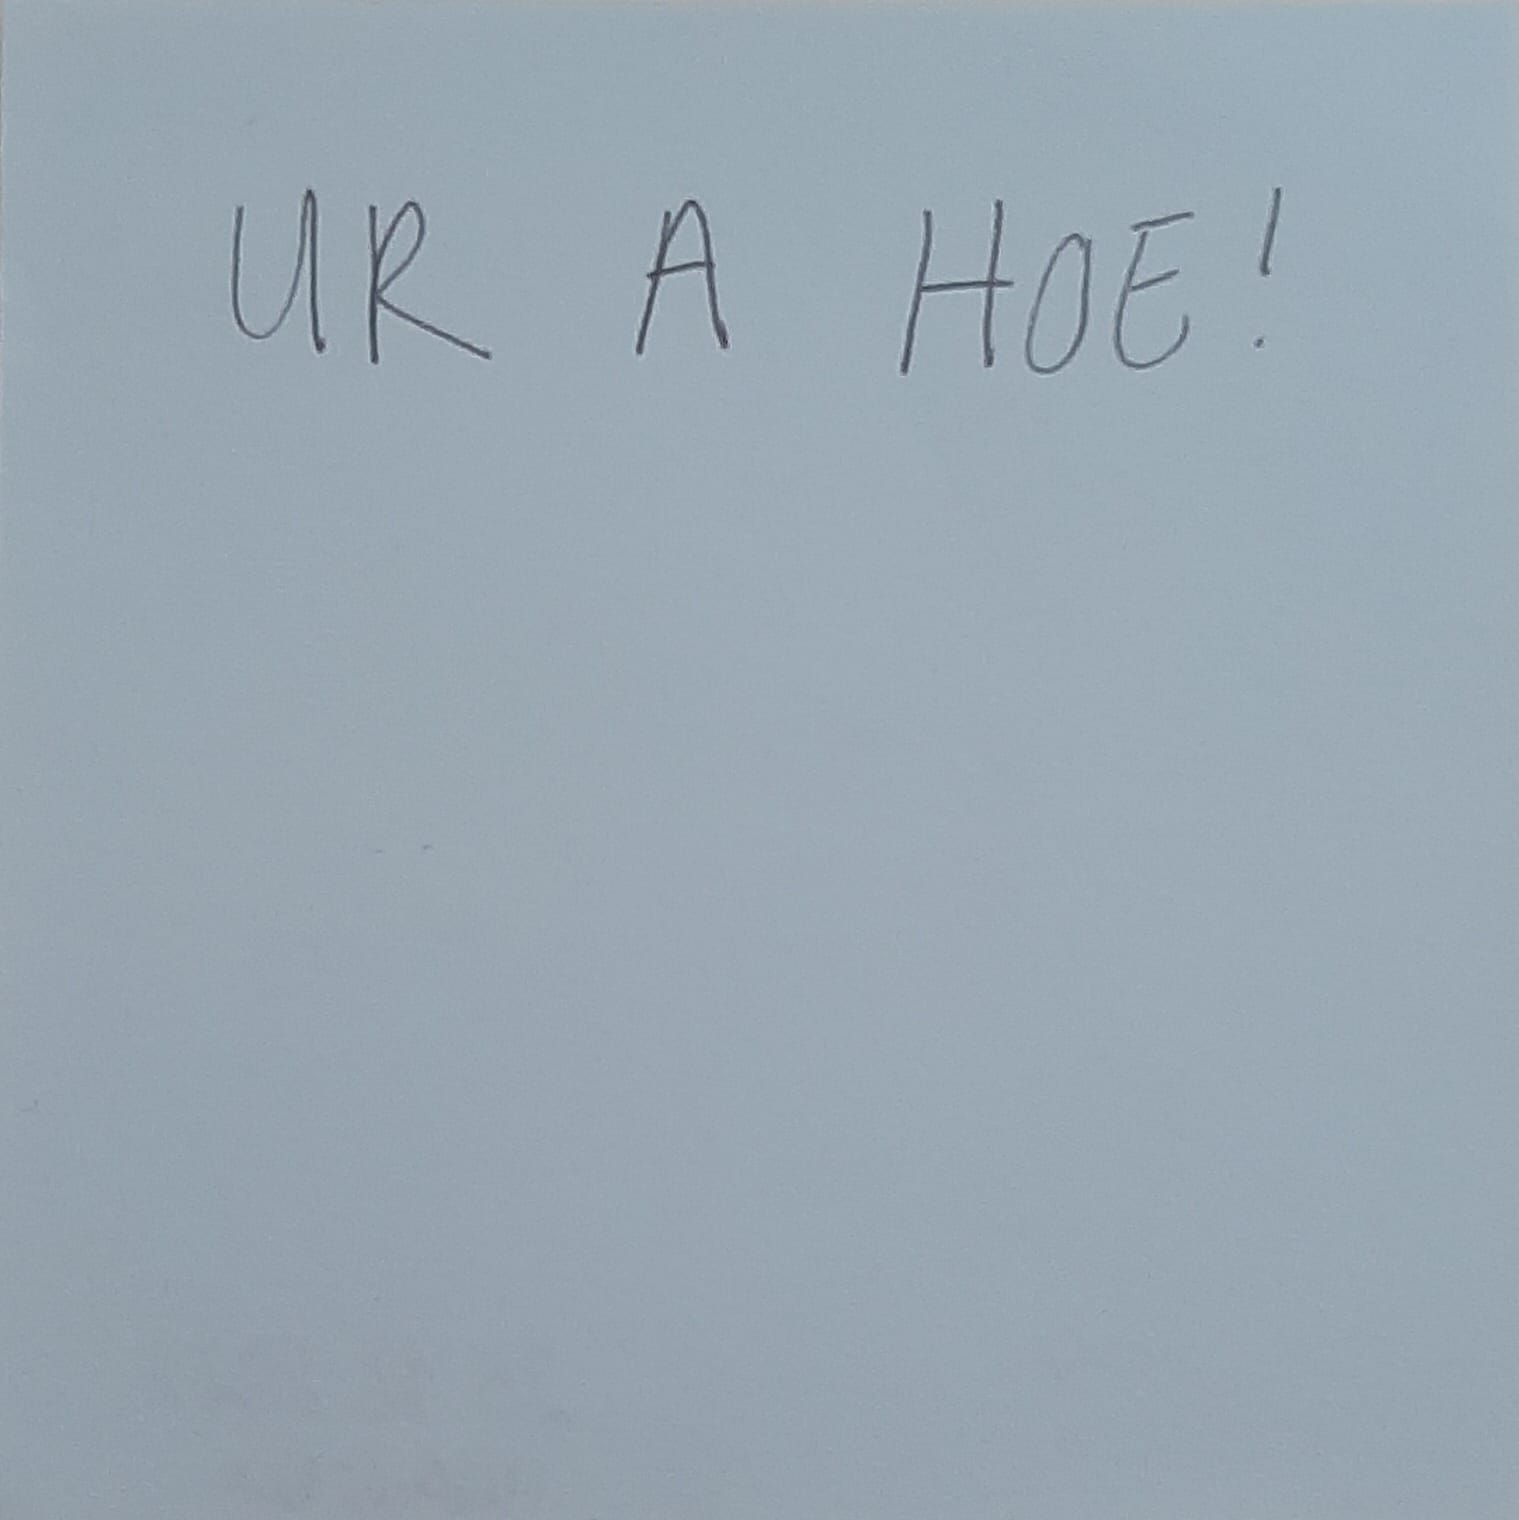 UR A HOE!